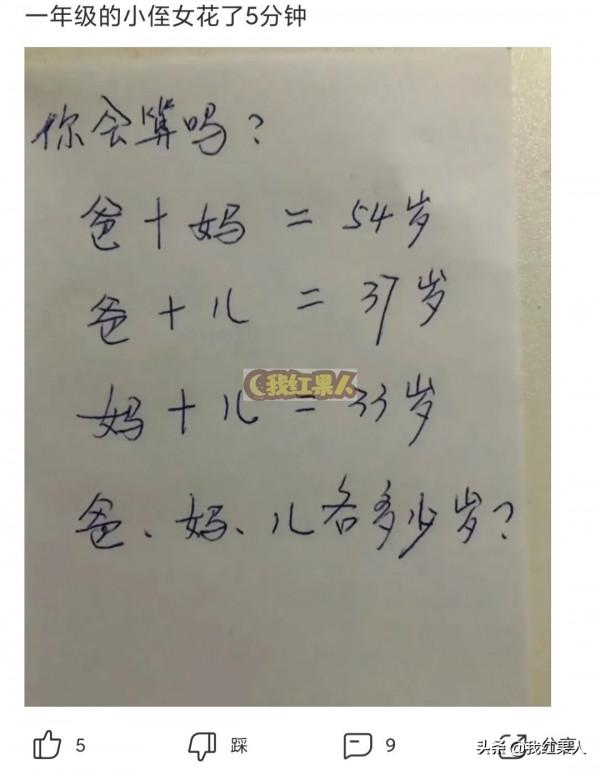 一年级的小侄女花了5分钟
你会算吗？
爸＋妈＝54岁
爸＋儿＝37岁
我红果人
妈＋儿＝33岁
爸、妈、儿各多少岁？
5 踩 9 分享
头条 @我红果人